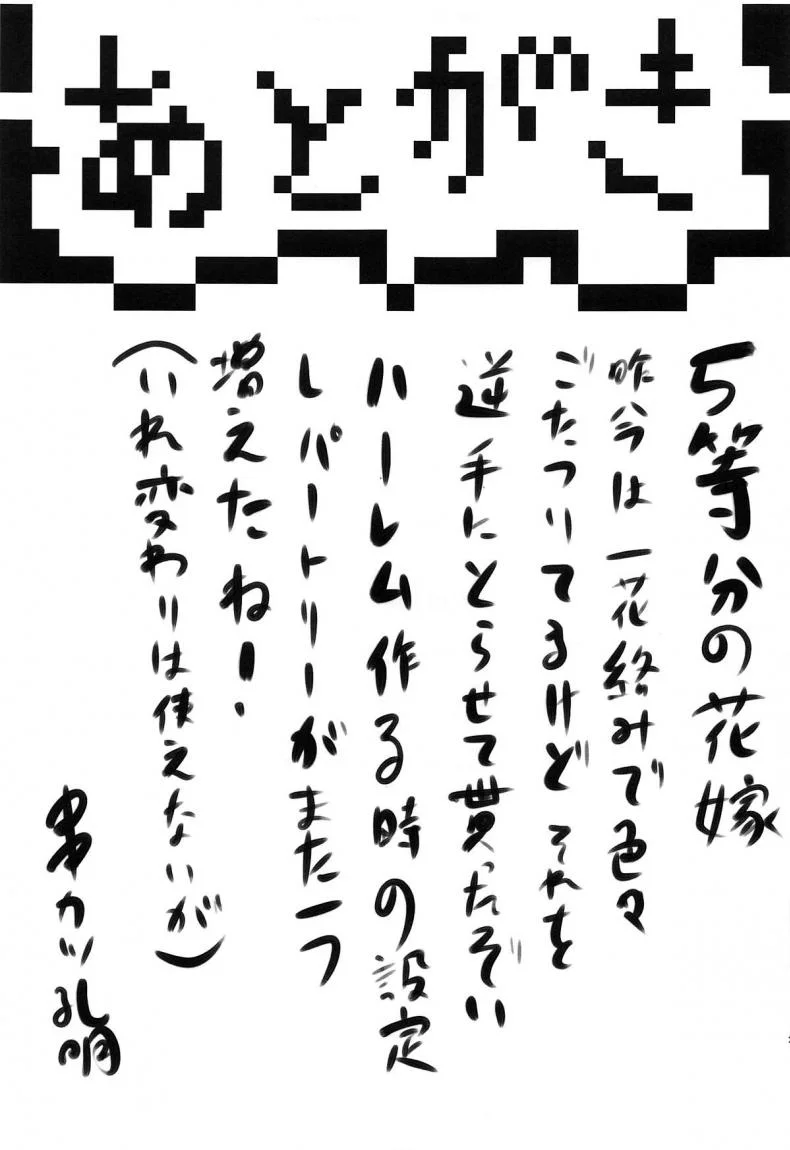 あとがき
5等分の花嫁
昨今は一花絡みで色々
ごたつりてるけどそれを
逆手にとらせて貰ったぞい
ハーレム作る時の設定
レパートリーがまた一つ
増えたね！
(いれ変わりは使えないが)
串カツ孔明